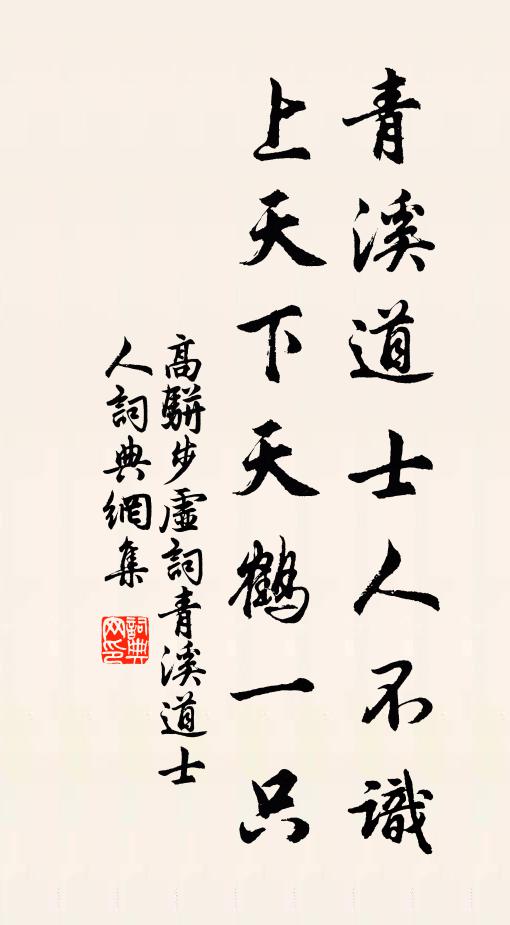 青溪道士人不識
上天下天鶴一只
高駢步虛詞青溪道士
人詞典網集
詞典
网印